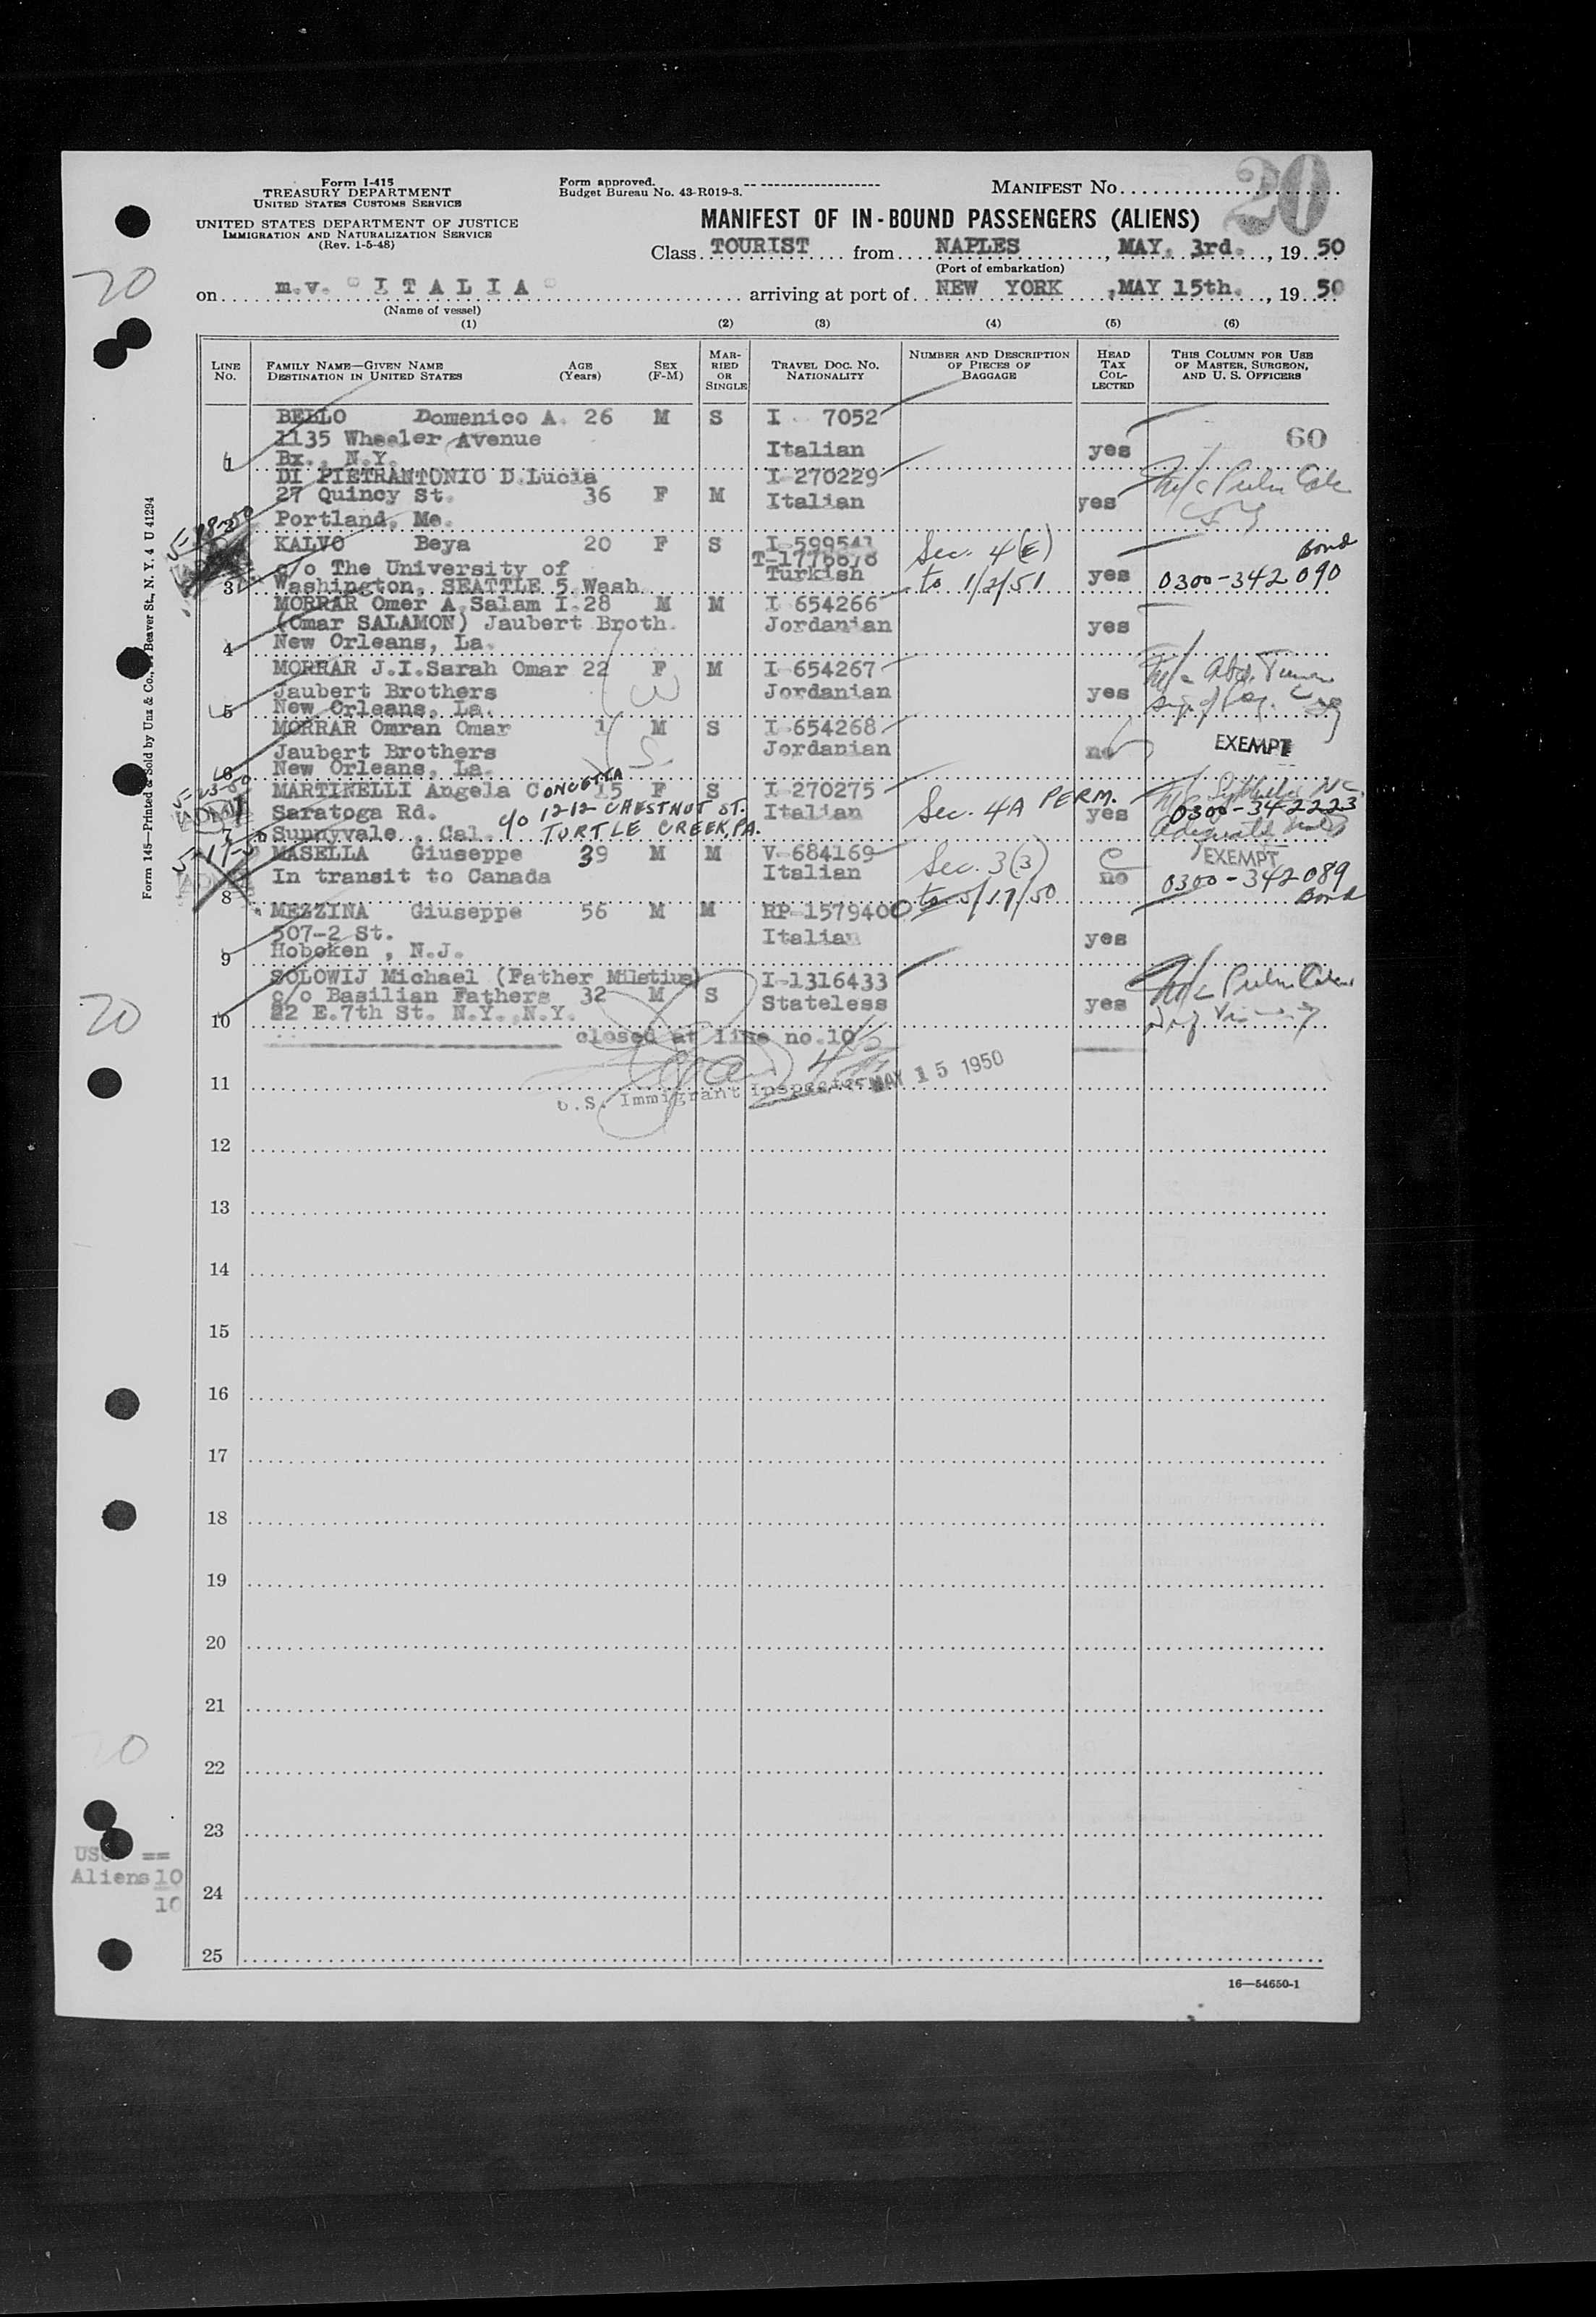 Form I-415
TREASURY DEPARTMENT
UNITED STATES CUSTOMS SERVICE
UNITED STATES DEPARTMENT OF JUSTICE
IMMIGRATION AND NATURALIZATION SERVICE
(Rev. 1-5-48)
Form approved.
Budget Bureau No. 43-R019-3.
MANIFEST No.
20
MANIFEST OF IN-BOUND PASSENGERS (ALIENS)
Class TOURIST from NAPLES, MAY. 3rd., 19 50
(Port of embarkation)
20
on m.v. "I T A L I A" arriving at port of NEW YORK, MAY 15th., 19 50
(Name of vessel)
(1) (2) (3) (4) (5) (6)
LINE No.
FAMILY NAME—GIVEN NAME
DESTINATION IN UNITED STATES
AGE (Years)
SEX (F-M)
MARRIED OR SINGLE
TRAVEL DOC. NO. NATIONALITY
NUMBER AND DESCRIPTION OF PIECES OF BAGGAGE
HEAD TAX COLLECTED
THIS COLUMN FOR USE OF MASTER, SURGEON, AND U. S. OFFICERS
BELLO Domenico A. 26 M S I 7052
1135 Wheeler Avenue Italian yes 60
1 Bx., N.Y.
DI PIETRANTONIO D.Lucia I-270229
27 Quincy St. 36 F M Italian yes
Portland, Me.
5-18-50
KALVO Beya 20 F S I-599541 Sec. 4(E) Bond
T-1776676
c/o The University of Turkish to 1/2/51 yes 0300-342090
3 Washington, SEATTLE 5 Wash.
MORRAR Omer A.Salam I.28 M M I 654266
(Omar SALAMON) Jaubert Broth. Jordanian yes
4 New Orleans, La.
MORRAR J.I.Sarah Omar 22 F M I-654267
Jaubert Brothers Jordanian yes
5 New Orleans, La.
MORRAR Omran Omar 1 M S I-654268
Jaubert Brothers Jordanian no EXEMPT
6 New Orleans, La.
MARTINELLI Angela CONCETTA 15 F S I-270275
Saratoga Rd. c/o 1212 CHESTNUT ST. Italian Sec. 4A PERM. yes 0300-342223
7 Sunnyvale, Cal. TURTLE CREEK, PA.
MASELLA Giuseppe 39 M M V-684169 Sec. 3(3) EXEMPT
In transit to Canada Italian to 5/17/50 no 0300-342089
8 Bond
MEZZINA Giuseppe 56 M M RP-1579400
507-2 St. Italian yes
9 Hoboken, N.J.
SOLOWIJ Michael (Father Miletius) I-1316433
c/o Basilian Fathers 32 M S Stateless yes
10 22 E.7th St. N.Y. N.Y.
20
closed at line no.10
11
U.S. Immigrant Inspector MAY 15 1950
12
13
14
15
16
17
18
19
20
21
22
23
Aliens 10
10
24
25
16—54650-1